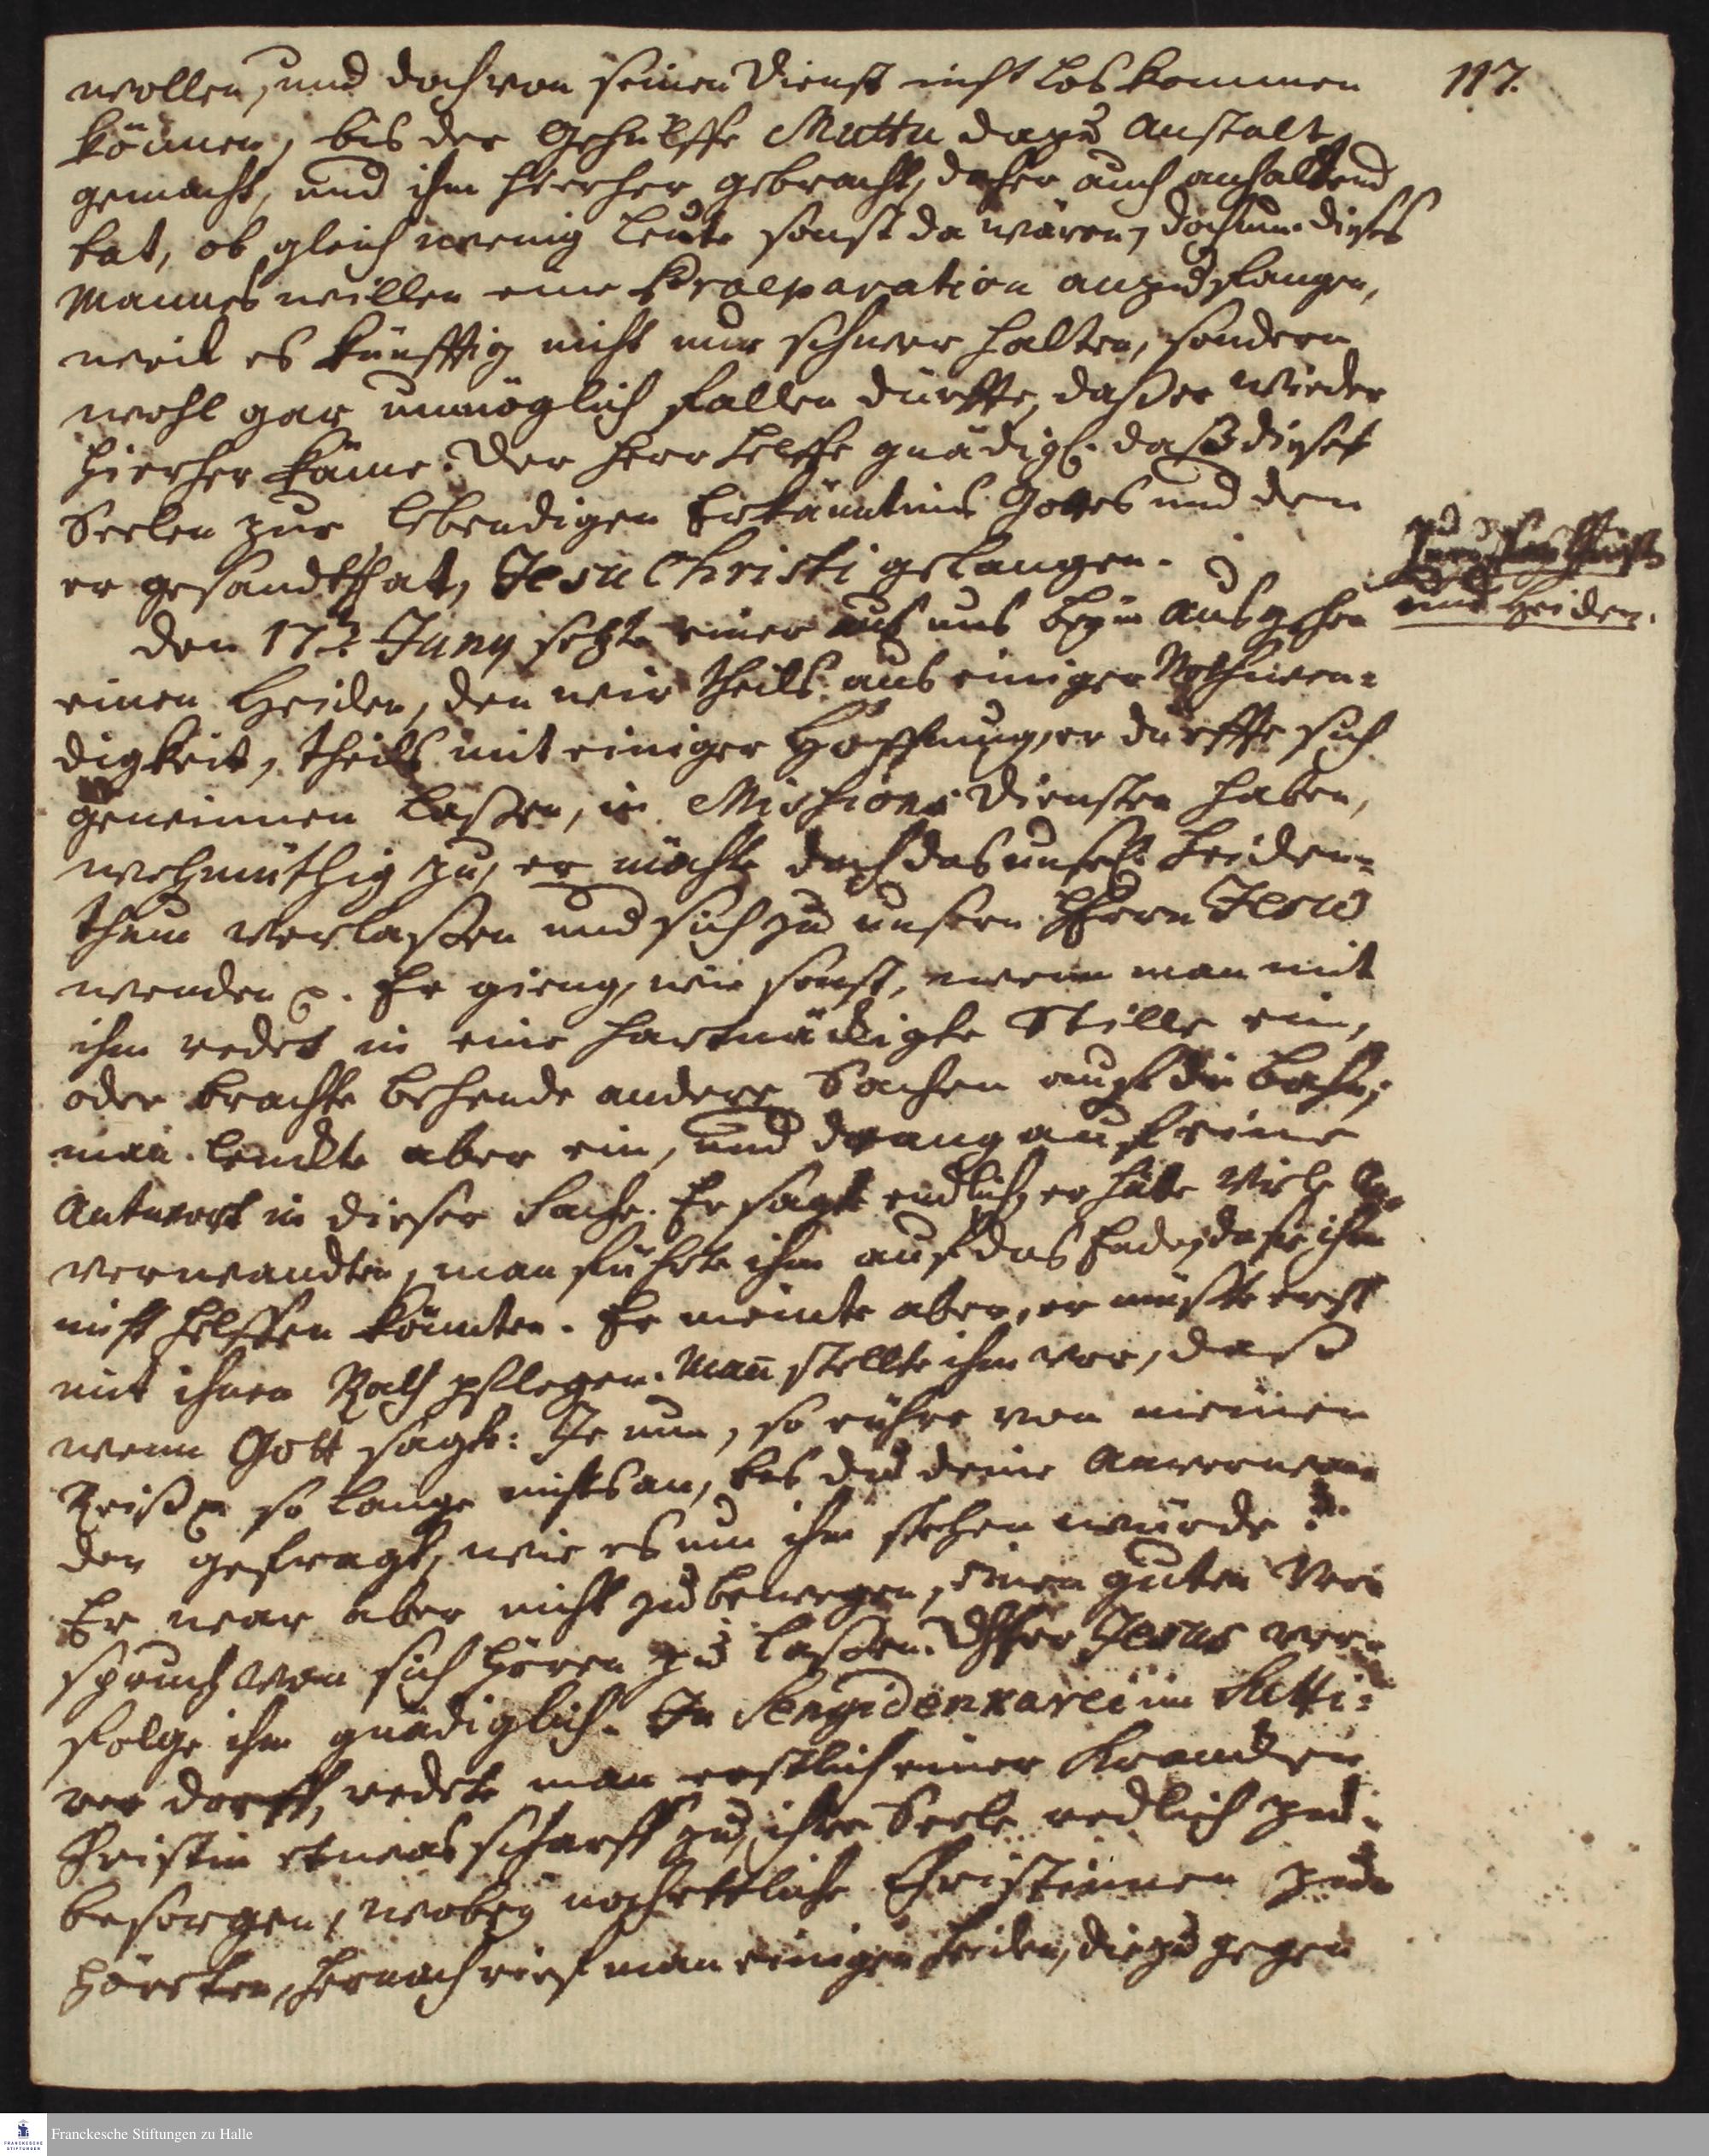 117.
wollen, und doch von seinen Dienst nicht los kommen
können, bis der Gehülffe Muttu dazu Anstalt
gemacht, und ihn hierher gebracht, daher auch anhaltend
bat, ob gleich wenig Leute sonst da wären, doch um dieses
Mannes willen eine Praeparation anzufangen,
weil es künfftig nicht nur schwer halten, sondern
wohl gar unmöglich fallen dürffte, daß er wieder
hierher käme. Der Herr helffe gnädigl. daß diese
Seelen zur lebendigen Erkänntnis Gottes und den
er gesandt hat, Jesu Christi gelangen.
und Heiden.
Den 17. Juny setzte einer aus uns beym Ausgehen
einen Heiden, den wir theils aus einiger Nothwen-
digkeit, theils mit einiger Hoffnung, er dürffte sich
gewinnen laßen, in Missions Diensten haben,
wehmüthig zu, er möchte doch das unsel. Heiden-
thum verlaßen und sich zu unsern Herrn Jesu
wenden p. Er gieng, wie sonst, wenn man mit
ihm redet in eine hartnäckigte Stille ein,
oder brachte behende andere Sachen auf die Bahn;
man lenckte aber ein, und drang auf eine
Antwort in dieser Sache. Er sagte endlich, er hätte viele An-
verwandten, man führte ihm auf das Ende, da sie ihm
nicht helffen könnten. Er meinte aber, er müßte erst
mit ihnen Rath pflegen. Man stellte ihm vor, daß
wenn Gott sagte: Je nun, so rühre von meinen
Reiß p so lange nichts an, bis du deine Anverwan
den gefragt, wie es um ihn stehen würde?
Er war aber nicht zu bewegen, einen guten Ver
spruch von sich hören zu laßen. Herr Jesus ver-
folge ihn gnädiglich. In Sengidenkarei im Sutti-
rer dorff, redete man erstlich einer krancken
Christin etwas scharff zu, ihre Seele redlich zu
besorgen, wobey noch etliche Christinnen zu
höreten, hernach rief man einigen Heiden, die zu gegen
Franckesche Stiftungen zu Halle